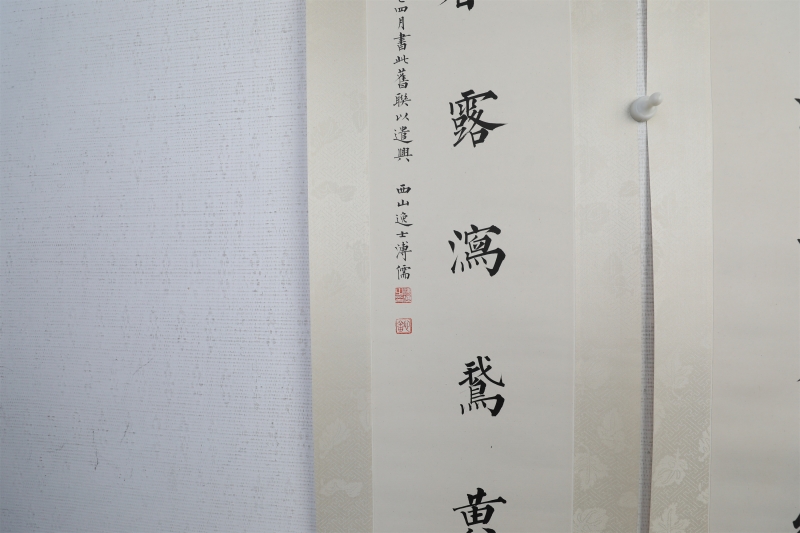 露瀉鵞黄
四月書此舊聯以遣興 西山逸士溥儒